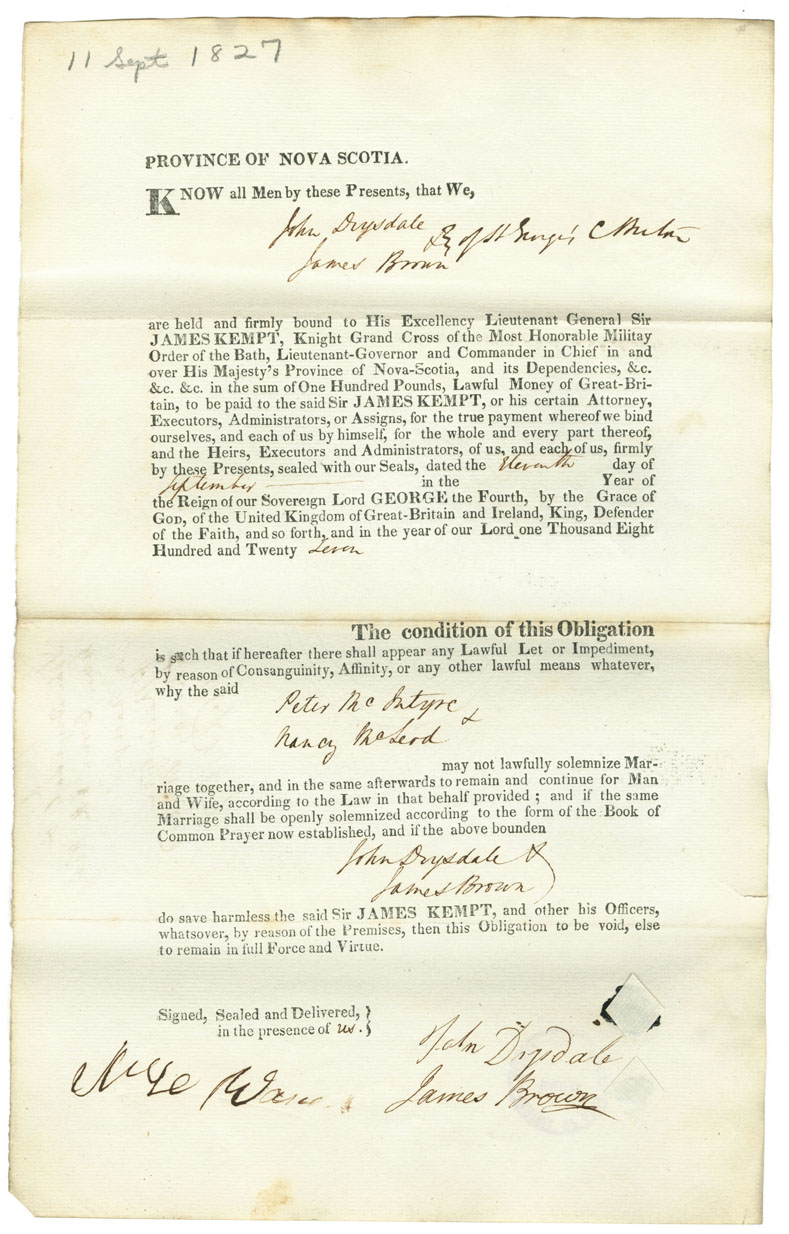 11 Sept 1827
PROVINCE OF NOVA SCOTIA.
KNOW all Men by these Presents, that We,
John Drysdale
James Brown
of St George's C Breton
are held and firmly bound to His Excellency Lieutenant General Sir
JAMES KEMPT, Knight Grand Cross of the Most Honorable Militay
Order of the Bath, Lieutenant-Governor and Commander in Chief in and
over His Majesty's Province of Nova-Scotia, and its Dependencies, &c.
&c. &c. in the sum of One Hundred Pounds, Lawful Money of Great-Bri-
tain, to be paid to the said Sir JAMES KEMPT, or his certain Attorney,
Executors, Administrators, or Assigns, for the true payment whereof we bind
ourselves, and each of us by himself, for the whole and every part thereof,
and the Heirs, Executors and Administrators, of us, and each of us, firmly
by these Presents, sealed with our Seals, dated the Eleventh day of
September in the Year of
the Reign of our Sovereign Lord GEORGE the Fourth, by the Grace of
GOD, of the United Kingdom of Great-Britain and Ireland, King, Defender
of the Faith, and so forth, and in the year of our Lord one Thousand Eight
Hundred and Twenty Seven
The condition of this Obligation
is such that if hereafter there shall appear any Lawful Let or Impediment,
by reason of Consanguinity, Affinity, or any other lawful means whatever,
why the said
Peter McIntyre &
Nancy McLeod
may not lawfully solemnize Mar-
riage together, and in the same afterwards to remain and continue for Man
and Wife, according to the Law in that behalf provided ; and if the same
Marriage shall be openly solemnized according to the form of the Book of
Common Prayer now established, and if the above bounden
John Drysdale &
James Brown
do save harmless the said Sir JAMES KEMPT, and other his Officers,
whatsover, by reason of the Premises, then this Obligation to be void, else
to remain in full Force and Virtue.
Signed, Sealed and Delivered, }
in the presence of us. }
John Drysdale
James Brown